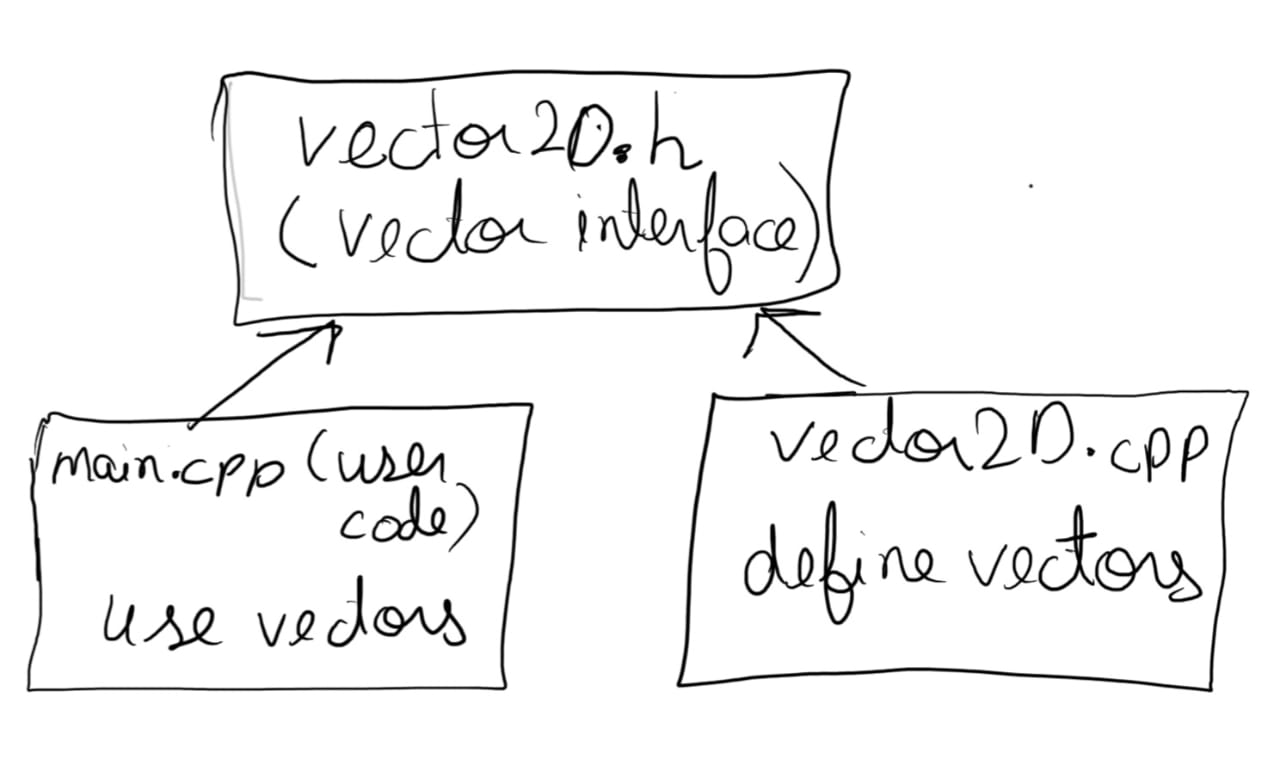 vector2D.h
(vector interface)
main.cpp (user
code)
use vectors
vector2D.cpp
define vectors